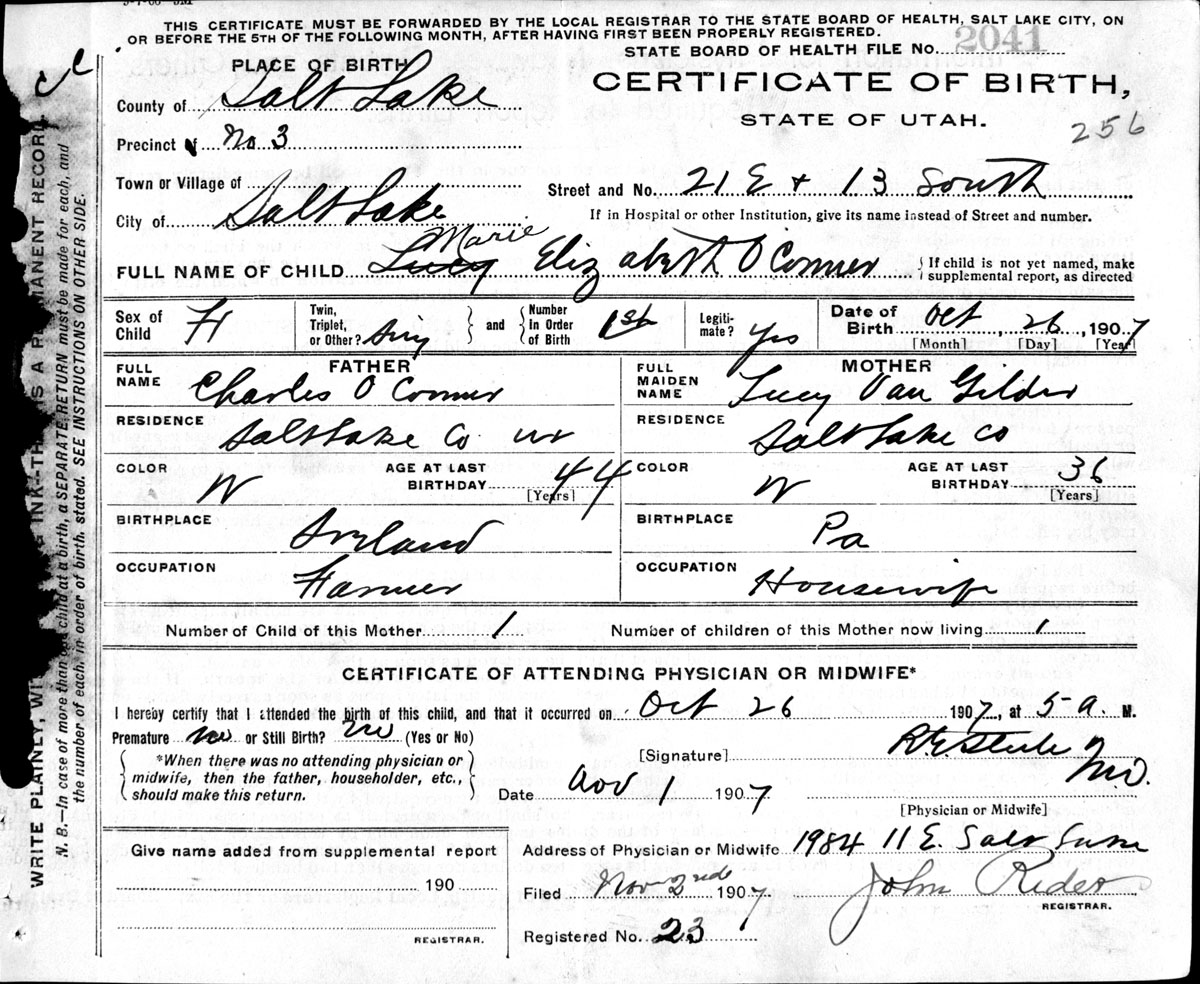 THIS CERTIFICATE MUST BE FORWARDED BY THE LOCAL REGISTRAR TO THE STATE BOARD OF HEALTH, SALT LAKE CITY, ON
OR BEFORE THE 5TH OF THE FOLLOWING MONTH, AFTER HAVING FIRST BEEN PROPERLY REGISTERED.
STATE BOARD OF HEALTH FILE No. 2041
PLACE OF BIRTH
CERTIFICATE OF BIRTH,
County of Salt Lake
STATE OF UTAH.
256
Precinct of No 3
Town or Village of
Street and No. 21 E + 13 South
City of Salt Lake
If in Hospital or other Institution, give its name instead of Street and number.
Marie
FULL NAME OF CHILD Lucy Elizabeth O Conner
{ If child is not yet named, make
supplemental report, as directed
Sex of Child F
Twin, Triplet, or Other? Sing
and
Number in Order of Birth 1st
Legitimate? Yes
Date of Birth Oct, 26, 1907
[Month] [Day] [Year]
FATHER
MOTHER
FULL NAME Charles O Conner
FULL MAIDEN NAME Lucy Van Gilder
RESIDENCE Salt Lake Co
RESIDENCE Salt Lake Co
COLOR W
AGE AT LAST BIRTHDAY 44
[Years]
COLOR W
AGE AT LAST BIRTHDAY 36
[Years]
BIRTHPLACE Ireland
BIRTHPLACE Pa
OCCUPATION Farmer
OCCUPATION Housewife
Number of Child of this Mother 1
Number of children of this Mother now living 1
CERTIFICATE OF ATTENDING PHYSICIAN OR MIDWIFE*
I hereby certify that I attended the birth of this child, and that it occurred on Oct 26 1907, at 5 a. M.
Premature no or Still Birth? no (Yes or No)
*When there was no attending physician or
midwife, then the father, householder, etc.,
should make this return.
[Signature] M.D.
Date Nov 1 1907
[Physician or Midwife]
Give name added from supplemental report
190
REGISTRAR.
Address of Physician or Midwife 1984 11 E.
Filed Nov 2nd 1907
John Rider
REGISTRAR.
Registered No. 23
WRITE PLAINLY, INK--THIS IS A PERMANENT RECORD.
N. B.—In case of more than one child at a birth, a SEPARATE RETURN must be made for each, and
the number of each, in order of birth, stated. SEE INSTRUCTIONS ON OTHER SIDE.